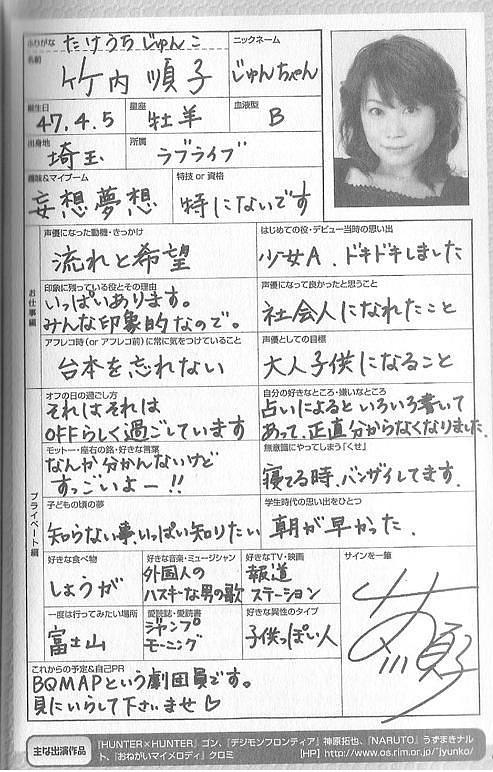 ふりがな たけうちじゅんこ
ニックネーム
名前 竹内順子
じゅんちゃん
誕生日 47.4.5
星座 牡羊
血液型 B
出身地 埼玉
所属 ラブライブ
趣味&マイブーム
妄想夢想
特技 or 資格
特にないです
お仕事編
声優になった動機・きっかけ
流れと希望
はじめての役・デビュー当時の思い出
少女A、ドキドキしました
印象に残っている役とその理由
いっぱいあります。
みんな印象的なので。
声優になって良かったと思うこと
社会人になれたこと
アフレコ時(or アフレコ前)に常に気をつけていること
台本を忘れない
声優としての目標
大人子供になること
プライベート編
オフの日の過ごし方
それはそれは
OFFらしく過ごしています
自分の好きなところ・嫌いなところ
占いによるといろいろ書いて
あって、正直分からなくなりました。
モットー・座右の銘・好きな言葉
なんか分かんないけど
すっごいよー!!
無意識にやってしまう「くせ」
寝てる時、バンザイしてます。
子どもの頃の夢
知らない事、いっぱい知りたい
学生時代の思い出をひとつ
朝が早かった。
好きな食べ物
しょうが
好きな音楽・ミュージシャン
外国人の
ハスキーな男の歌
好きなTV・映画
報道
ステーション
サインを一筆
一度は行ってみたい場所
富士山
愛読誌・愛読書
ジャンプ
モーニング
好きな異性のタイプ
子供っぽい人
これからの予定&自己PR
BQMAPという劇団員です。
見にいらして下さいませ♡
主な出演作品
『HUNTER×HUNTER』ゴン、『デジモンフロンティア』神原拓也、『NARUTO』うずまきナル
ト、『おねがいマイメロディ』クロミ
【HP】http://www.os.rim.or.jp/~jyunko/